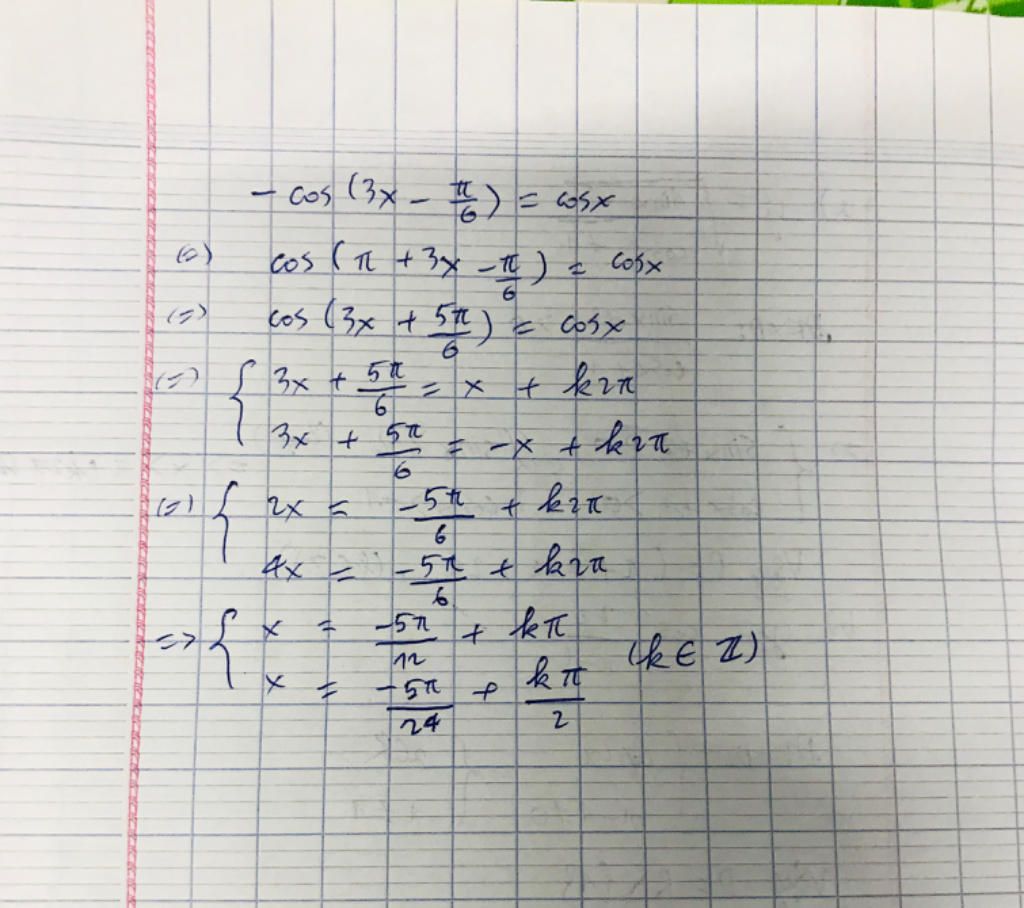 - cos (3x - π/6) = cosx
(=) cos (π + 3x - π/6) = cosx
(=) cos (3x + 5π/6) = cosx
(=) { 3x + 5π/6 = x + k2π
3x + 5π/6 = -x + k2π
(=) { 2x = -5π/6 + k2π
4x = -5π/6 + k2π
=> { x = -5π/12 + kπ
x = -5π/24 + kπ/2 (k ∈ ℤ)